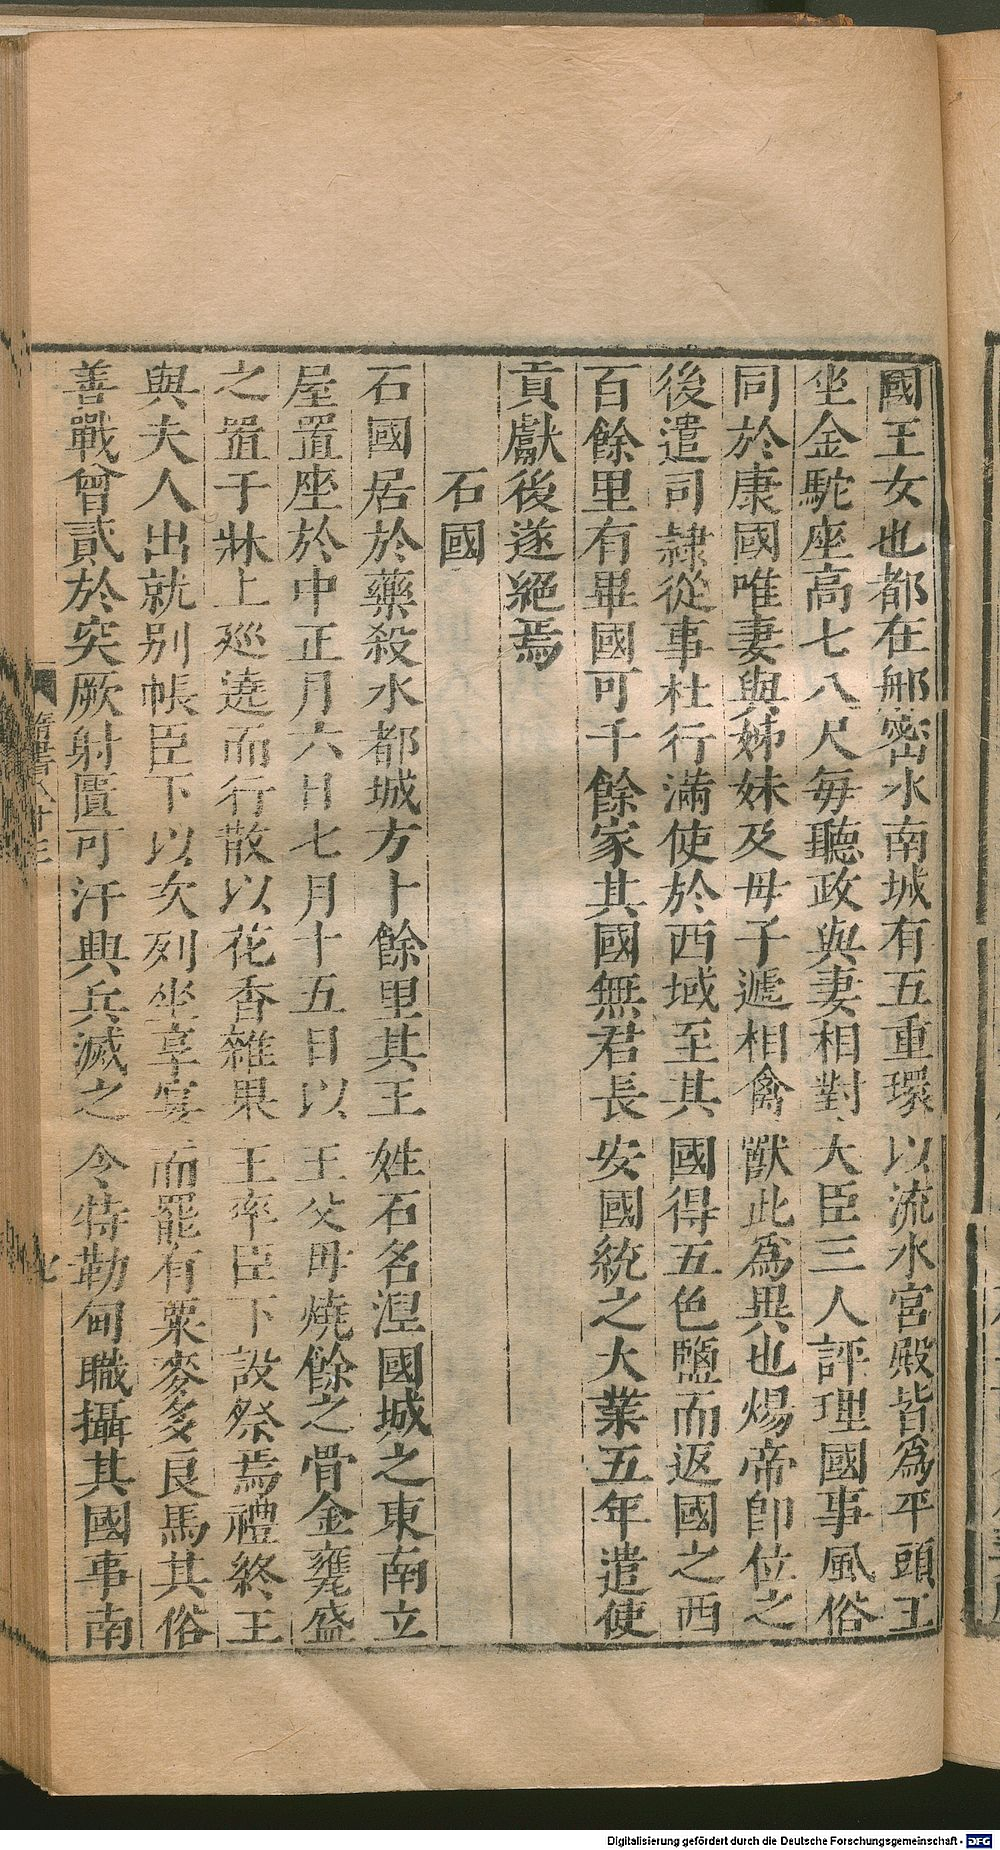 國王女也都在那密水南城有五重環以流水宮殿皆爲平頭王
坐金駝座高七八尺每聽政與妻相對大臣三人評理國事風俗
同於康國唯妻與姊妹及母子遞相禽獸此爲異也煬帝卽位之
後遣司隷從事杜行滿使於西域至其國得五色鹽而返國之西
百餘里有畢國可千餘家其國無君長安國統之大業五年遣使
貢獻後遂絕焉
石國
石國居於藥殺水都城方十餘里其王姓石名湼國城之東南立
屋置座於中正月六日七月十五日以王父母燒餘之骨金甕盛
之置于牀上廵遶而行散以花香雜果王率臣下設祭焉禮終王
與夫人出就別帳臣下以次列坐享宴而罷有粟麥多良馬其俗
善戰曾貳於突厥射匱可汗興兵滅之令特勒甸職攝其國事南
隋書八十三
七
Digitalisierung gefördert durch die Deutsche Forschungsgemeinschaft - DFG